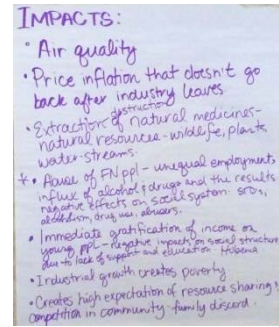 IMPACTS:
• Air quality
• Price inflation that doesn't go
back after industry leaves
destruction
• Extraction of natural medicines-
natural resources - wildlife, plants,
water - streams.
* • Abuse of FN ppl - unequal employment,
influx of alcohol, drugs and the results
negative effects on social system. STDs,
alcoholism, drug use, abusers.
• Immediate gratification of income on
young ppl - negative impacts on social structure
due to lack of support and education
• Industrial growth creates poverty
• Creates high expectation of resource sharing &
competition in community - family discord.